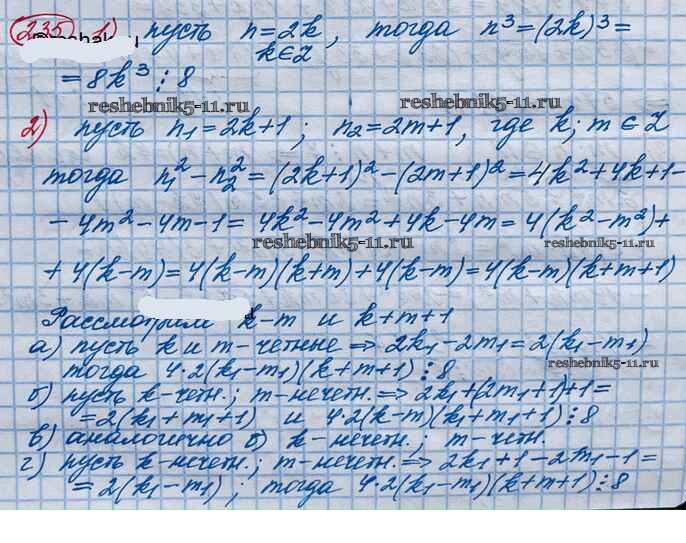 235 1) пусть n=2k, тогда n³=(2k)³=
k∈Z
=8k³⋮8
reshebnik5-11.ru reshebnik5-11.ru
2) пусть n₁=2k+1; n₂=2m+1, где k; m ∈ Z
тогда n₁²-n₂²=(2k+1)²-(2m+1)²=4k²+4k+1-
-4m²-4m-1=4k²-4m²+4k-4m=4(k²-m²)+
reshebnik5-11.ru reshebnik5-11.ru
+4(k-m)=4(k-m)(k+m)+4(k-m)=4(k-m)(k+m+1)
Рассмотрим k-m и k+m+1
а) пусть k и m-четные ⇒ 2k₁-2m₁=2(k₁-m₁)
reshebnik5-11.ru
тогда 4·2(k₁-m₁)(k+m+1)⋮8
б) пусть k-четн.; m-нечетн. ⇒ 2k₁+(2m₁+1)+1=
=2(k₁+m₁+1) и 4·2(k-m)(k₁+m₁+1)⋮8
в) аналогично б) k-нечетн.; m-четн.
г) пусть k-нечетн.; m-нечетн. ⇒ 2k₁+1-2m₁-1=
=2(k₁-m₁); тогда 4·2(k₁-m₁)(k+m+1)⋮8